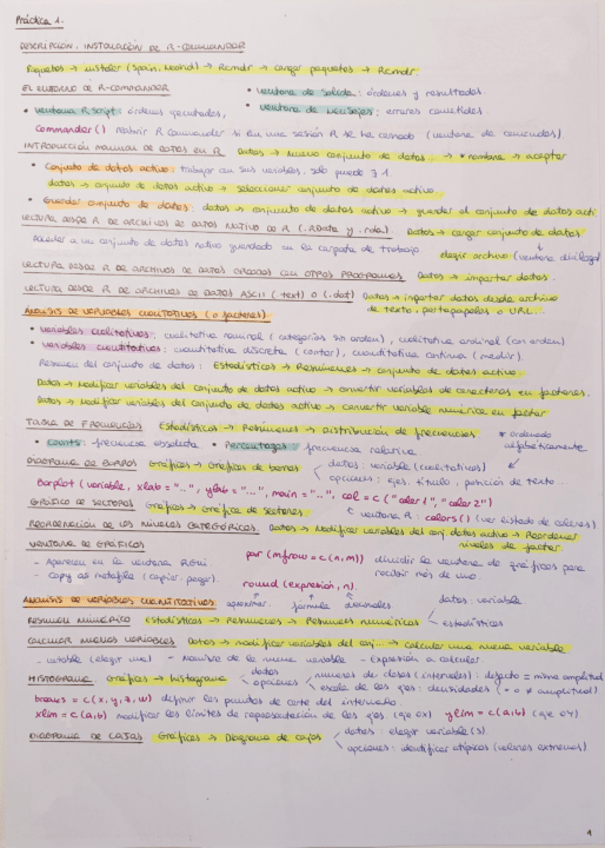 Práctica 1.
DESCRIPCIÓN. INSTALACIÓN DE R-COMMANDER
Paquetes → instalar (Spain, Madrid) → Rcmdr → cargar paquetes → Rcmdr.
EL ENTORNO DE R-COMMANDER • ventana de salida: órdenes y resultados.
• ventana R Script: órdenes ejecutadas, • ventana de mensajes: errores cometidos.
Commander() reabrir R Commander si en una sesión R se ha cerrado (ventana de comandos)
INTRODUCCIÓN MANUAL DE DATOS EN R Datos → nuevo conjunto de datos... → *nombre* → aceptar
• Conjunto de datos activo: trabajar con sus variables, solo puede 1.
datos → conjunto de datos activo → seleccionar conjunto de datos activo.
• Guardar conjunto de datos: datos → conjunto de datos activo → guardar el conjunto de datos acti.
LECTURA DESDE R DE ARCHIVOS DE DATOS NATIVO DE R (.RData y .rda). Datos → cargar conjunto de datos
Acceder a un conjunto de datos nativo guardado en la carpeta de trabajo ↓
elegir archivo (ventana diálogo)
LECTURA DESDE R DE ARCHIVOS DE DATOS CREADOS CON OTROS PROGRAMAS Datos → importar datos.
LECTURA DESDE R DE ARCHIVOS DE DATOS ASCII (.text) O (.dat) Datos → importar datos desde archivo
de texto, portapapeles o URL...
ANÁLISIS DE VARIABLES CUALITATIVAS (o factores).
• variables cualitativas: cualitativa nominal (categorías sin orden), cualitativa ordinal (con orden)
• variables cuantitativas: cuantitativa discreta (contar), cuantitativa continua (medir).
Resumen del conjunto de datos: Estadísticos → Resúmenes → conjunto de datos activo.
Datos → Modificar variables del conjunto de datos activo → convertir variables de caracteres en factores.
Datos → Modificar variables del conjunto de datos activo → convertir variable numérica en factor
TABLA DE FRECUENCIAS Estadísticos → Resúmenes → Distribución de frecuencias * ordenado
• counts: frecuencia absoluta • Percentages: frecuencia relativa. alfabéticamente
DIAGRAMA DE BARRAS Gráficas → Gráfica de barras datos: variable (cualitativas)
opciones: ejes, título, posición de texto...
Barplot (variable, xlab = "...", ylab = "...", main = "...", col = c("color 1", "color 2")
GRÁFICO DE SECTORES Gráficas → Gráfica de sectores ventana R: colors() (ver listado de colores)
REORDENACIÓN DE LOS NIVELES CATEGÓRICOS. Datos → Modificar variables del conj. datos activo → Reordenar
niveles de factor.
VENTANA DE GRÁFICOS
- Aparecen en la ventana RGui. par(mfrow = c(n,m)) dividir la ventana de gráficos para
- Copy as metafile (copiar, pegar). recibir más de uno.
round (expresión, n).
ANÁLISIS DE VARIABLES CUANTITATIVAS aproximar. fórmula decimales. datos: variable
RESUMEN NUMÉRICO Estadísticos → resúmenes → Resúmenes numéricos estadísticos
CALCULAR NUEVAS VARIABLES Datos → modificar variables del conj... → Calcular una nueva variable
- variable (elegir una) - Nombre de la nueva variable - Expresión a calcular.
HISTOGRAMA Gráficas → histograma datos
opciones número de clases (intervalos): defecto = misma amplitud
escala de los ejes: densidades (= o ≠ amplitud)
breaks = c(x,y,z,w) definir los puntos de corte del intervalo.
xlim = c(a,b) modificar los límites de representación de los ejes. (eje OX) ylim = c(a,b) (eje OY)
DIAGRAMA DE CAJAS Gráficas → Diagrama de cajas datos: elegir variable(s)
opciones: identificar atípicos (valores extremos)
1